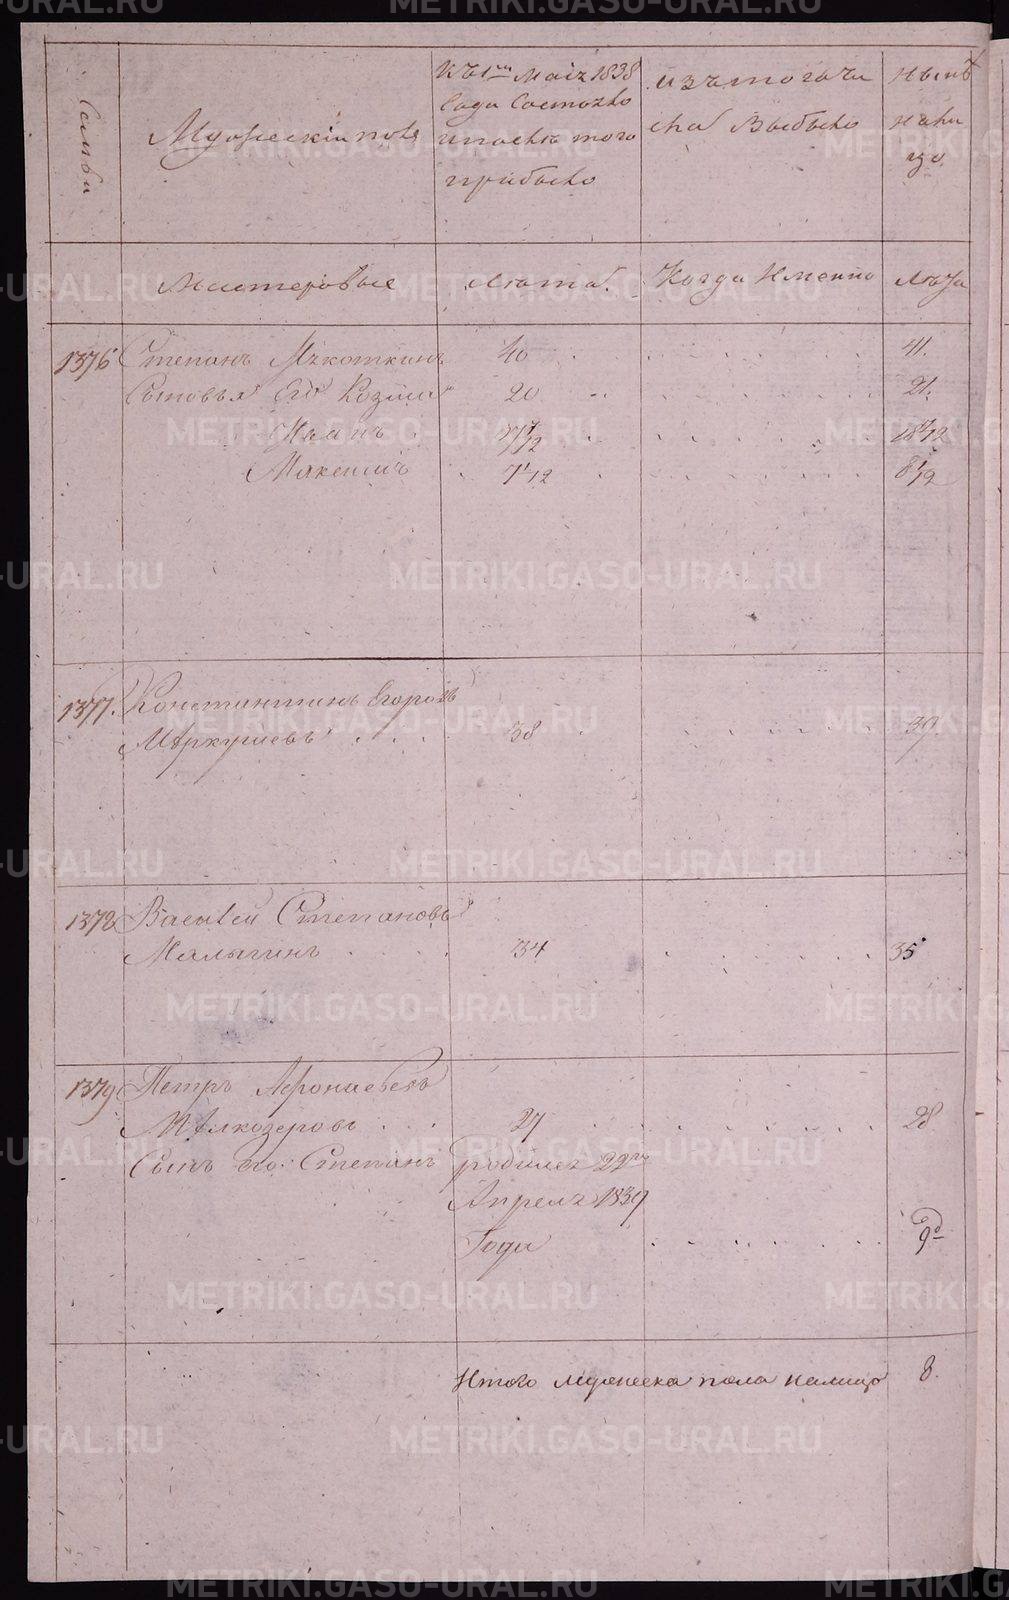 Семьи
Мужескій полъ
Къ 1му Маія 1838
Года Состояло
и послѣ того
прибыло
Изъ того чи
сла Выбыло
Нынѣ
нали
цо
Мастеровые
Лѣта
Когда Именно
Лѣта
1376 Степанъ Мякоткинъ 40 41.
Сыновья Его Козма 20 21.
Иванъ 17 7/12 18 7/12
Максимъ 7 1/12 8 1/12
1377. Константинъ Егоровъ
Меркурьевъ 38 39.
1378 Василей Степановъ
Малыгинъ 34 35
1379 Петръ Афонасьевъ
Мелкозеровъ 27 28
Сынъ его Степанъ родился 22го
Апреля 1839
Года 9д
Итого мужеска пола налицо 8.
METRIKI.GASO-URAL.RU